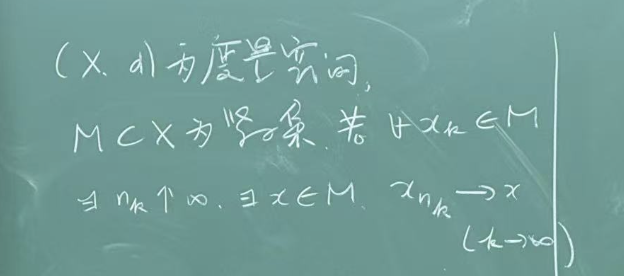 (X, d)为度量空间,
M⊂X为紧集. 若 ∀x_k∈M
∃ n_k↑∞. ∃x∈M. x_{n_k}→x
(k→∞)